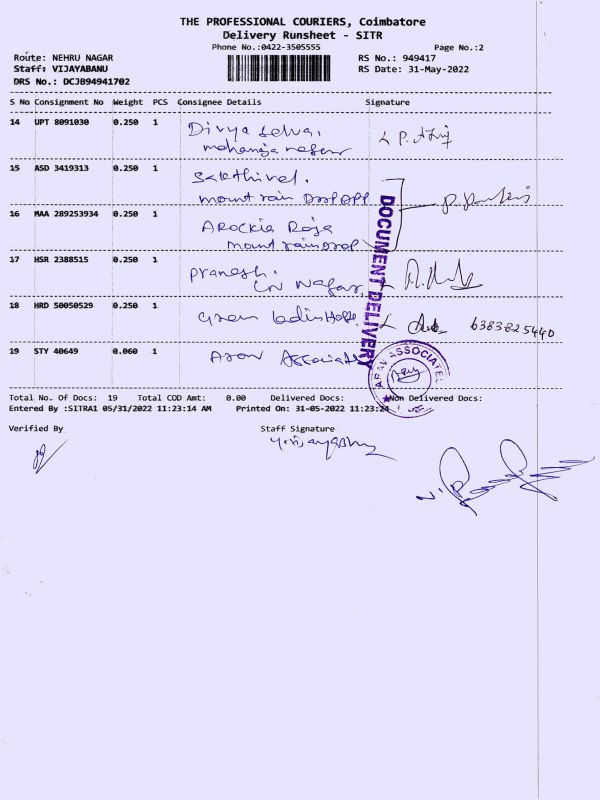 THE PROFESSIONAL COURIERS, Coimbatore
Delivery Runsheet - SITR
Phone No.:0422-3505555 Page No.:2
Route: NEHRU NAGAR RS No.: 949417
Staff: VIJAYABANU RS Date: 31-May-2022
DRS No.: DCJB94941702
S No Consignment No Weight PCS Consignee Details Signature
14 UPT 8091030 0.250 1 Divya Selva,
nagar
15 ASD 3419313 0.250 1 Sakthivel.
mount rain Drop APP
16 MAA 289253934 0.250 1 AROCKIA Raja
mount raindrop
17 HSR 2388515 0.250 1 Pranesh.
CN Nagar,
18 HRD 50050529 0.250 1 6383825440
19 STY 40649 0.060 1 Associate
DOCUMENT DELIVERY
ARAV ASSOCIATE
Total No. Of Docs: 19 Total COD Amt: 0.00 Delivered Docs: Non Delivered Docs:
Entered By :SITRA1 05/31/2022 11:23:14 AM Printed On: 31-05-2022 11:23:24
Verified By Staff Signature